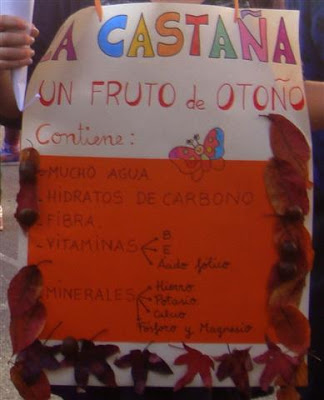 LA CASTAÑA
UN FRUTO de OTOÑO
Contiene:
-MUCHO AGUA
-HIDRATOS DE CARBONO
-FIBRA.
-VITAMINAS
B
E
Ácido fólico
-MINERALES
Hierro
Potasio
Calcio
Fósforo y Magnesio